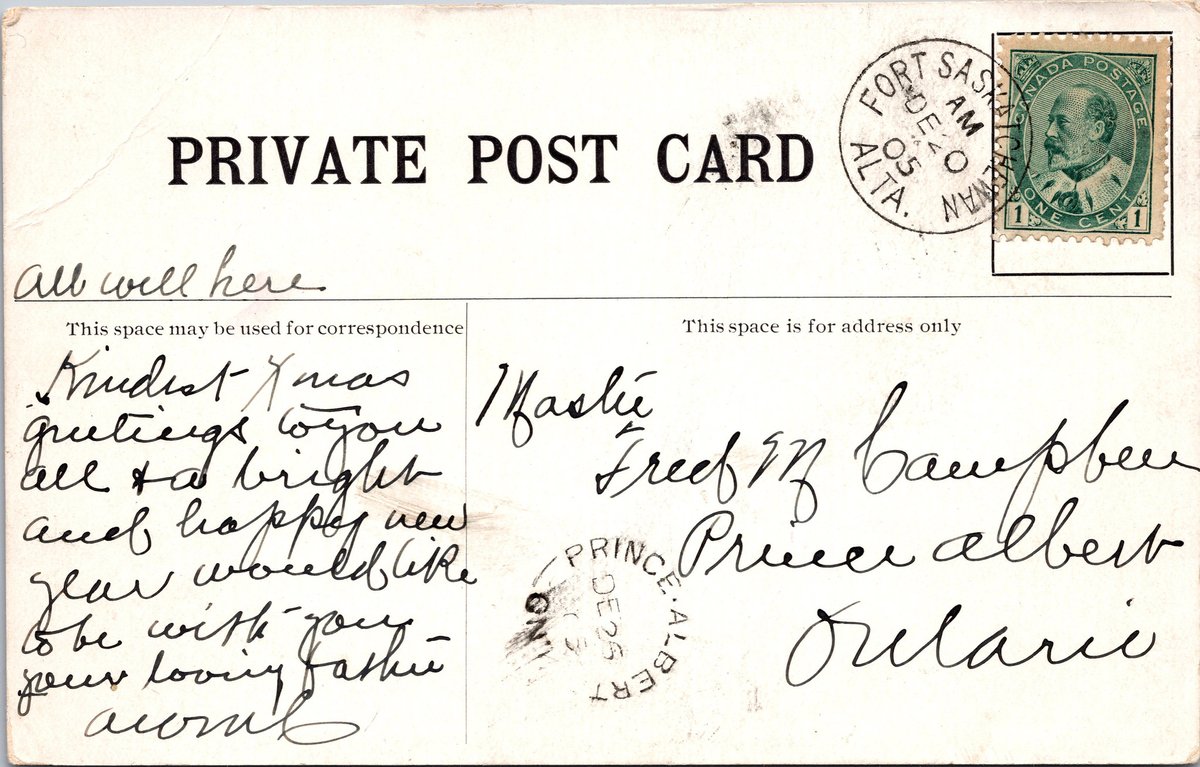 PRIVATE POST CARD
FORT SASKATCHEWAN
AM
DE 20
05
ALTA.
CANADA POSTAGE
ONE CENT
1 1
All well here
This space may be used for correspondence
This space is for address only
Kindest Xmas
greetings to you
all & a bright
and happy new
year would like
to be with you
your loving father
Master
Fred M Campbell
Prince Albert
Ontario
PRINCE ALBERT
DE 26
05
ONT